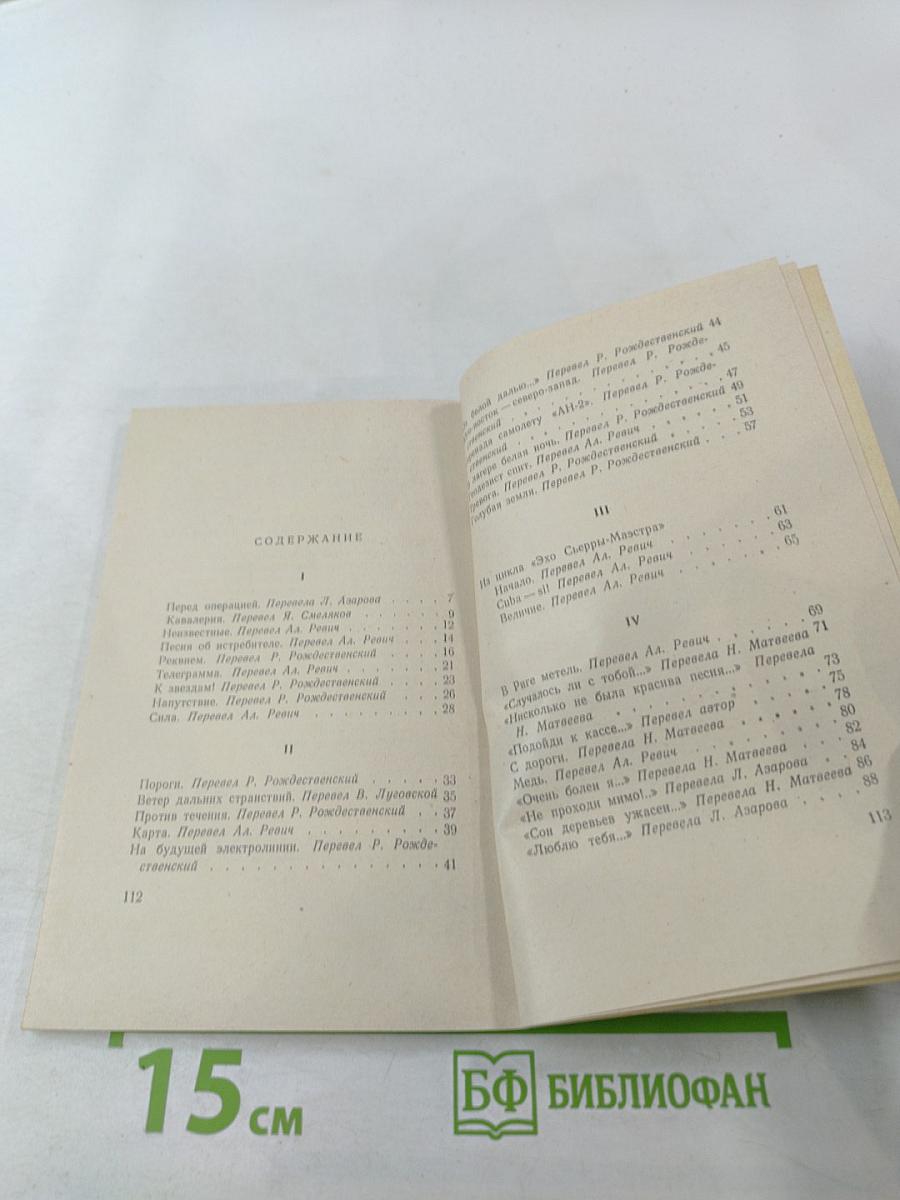 СОДЕРЖАНИЕ
I
Перед операцией. Перевела Л. Азарова . . . . 7
Кавалерия. Перевел Я. Смеляков . . . . . 9
Неизвестные. Перевел Ал. Ревич . . . . . . 12
Песня об истребителе. Перевел Ал. Ревич . . . 14
Реквием. Перевел Р. Рождественский . . . . 16
Телеграмма. Перевел Ал. Ревич . . . . . . 21
К звездам! Перевел Р. Рождественский . . . . 23
Напутствие. Перевел Р. Рождественский . . . . 26
Сила. Перевел Ал. Ревич . . . . . . . . 28
II
Пороги. Перевел Р. Рождественский . . . . . 33
Ветер дальних странствий. Перевел В. Луговской 35
Против течения. Перевел Р. Рождественский . . 37
Карта. Перевел Ал. Ревич . . . . . . . . 39
На будущей электролинии. Перевел Р. Рожде-
ственский . . . . . . . . . . . . . . 41
112
белой далью...» Перевел Р. Рождественский 44
восток — северо-запад. Перевел Р. Рожде-
ственский . . . . . . . . . . . . . . 45
самолету «АН-2». Перевел Р. Рожде-
ственский . . . . . . . . . . . . . . 47
лагере белая ночь. Перевел Р. Рождественский 49
Геодезист спит. Перевел Ал. Ревич . . . . . 51
Тревога. Перевел Р. Рождественский . . . . 53
Голубая земля. Перевел Р. Рождественский . . . 57
III
Из цикла «Эхо Сьерры-Маэстра»
Начало. Перевел Ал. Ревич . . . . . . . 61
Cuba — si! Перевел Ал. Ревич . . . . . . 63
Величие. Перевел Ал. Ревич . . . . . . . 65
IV
В Риге метель. Перевел Ал. Ревич . . . . . . 69
«Случалось ли с тобой...» Перевела Н. Матвеева 71
«Нисколько не была красива песня...» Перевела
Н. Матвеева . . . . . . . . . . . . . 73
«Подойди к кассе...» Перевел автор . . . . . 75
С дороги. Перевела Н. Матвеева . . . . . . 78
Медь. Перевел Ал. Ревич . . . . . . . . 80
«Очень болен я...» Перевела Н. Матвеева . . . 82
«Не проходи мимо!..» Перевела Л. Азарова . . . 84
«Сон деревьев ужасен...» Перевела Н. Матвеева 86
«Люблю тебя...» Перевела Л. Азарова . . . . 88
113
15 см
БФ БИБЛИОФАН